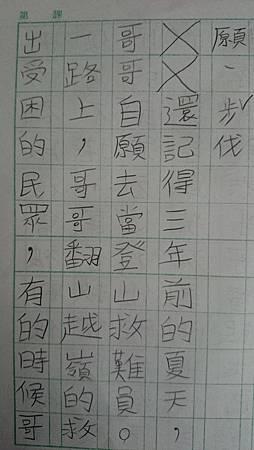 第 課
願、步伐
還記得三年前的夏天，
哥哥自願去當登山救難員。
一路上，哥哥翻山越嶺的救
出受困的民眾，有的時候哥